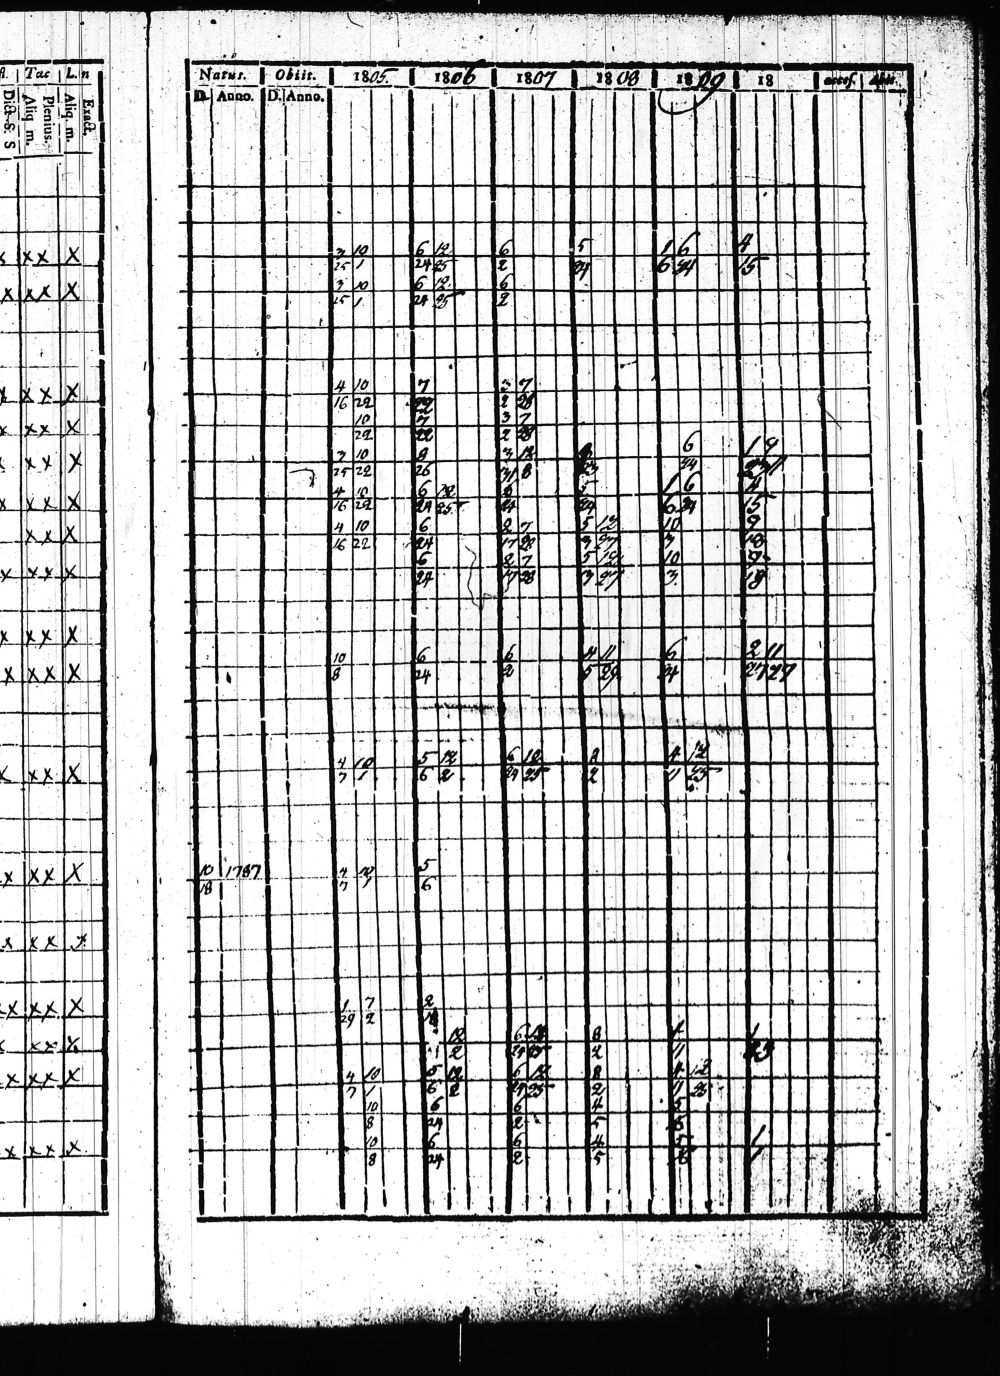 Tac | L. n
Aliq. m. | Plenius. | Aliq. m. | Exact.
Natus. | Obiit. | 1805. | 1806 | 1807 | 1808 | 1809 | 18 | accef. | Abit.
D. | Anno. | D. | Anno.
xx X 3 10 6 12 6 5 1 6 4
25 1 24 25 2 24 6 24 15
xx X 3 10 6 12 6
25 1 24 25 2
xx X 4 10 7 3 7
16 22 22 2 28
xx X 10 7 3 7
22 22 2 28
xx X 3 10 8 3 12 6 1 9
25 22 26 31 8 23 24
xx X 4 10 6 12 8 5 1 6 4
16 22 24 25 24 24 6 24 15
xx X 4 10 6 2 7 5 12 10 9
16 22 24 17 28 3 27 3 18
xx X 6 2 7 5 12 10 9
24 17 28 3 27 3 18
xx X
xx X 10 6 6 4 11 6 2 11
8 24 2 5 29 24 27 27
xx X 4 10 5 12 6 12 8 4 12
7 1 6 2 24 25 2 11 25
xx X 10 1787 4 10 5
18 7 1 6
xx x
xx X 1 7 2
29 2 18
xx X 12 6 12 8 4 1
2 24 25 2 11 23
xx X 4 10 5 12 6 12 8 4 12
7 1 6 2 24 25 2 11 25
10 6 6 4 5
8 24 2 5 8
xx X 10 6 6 4 5 1
8 24 2 5 8 1